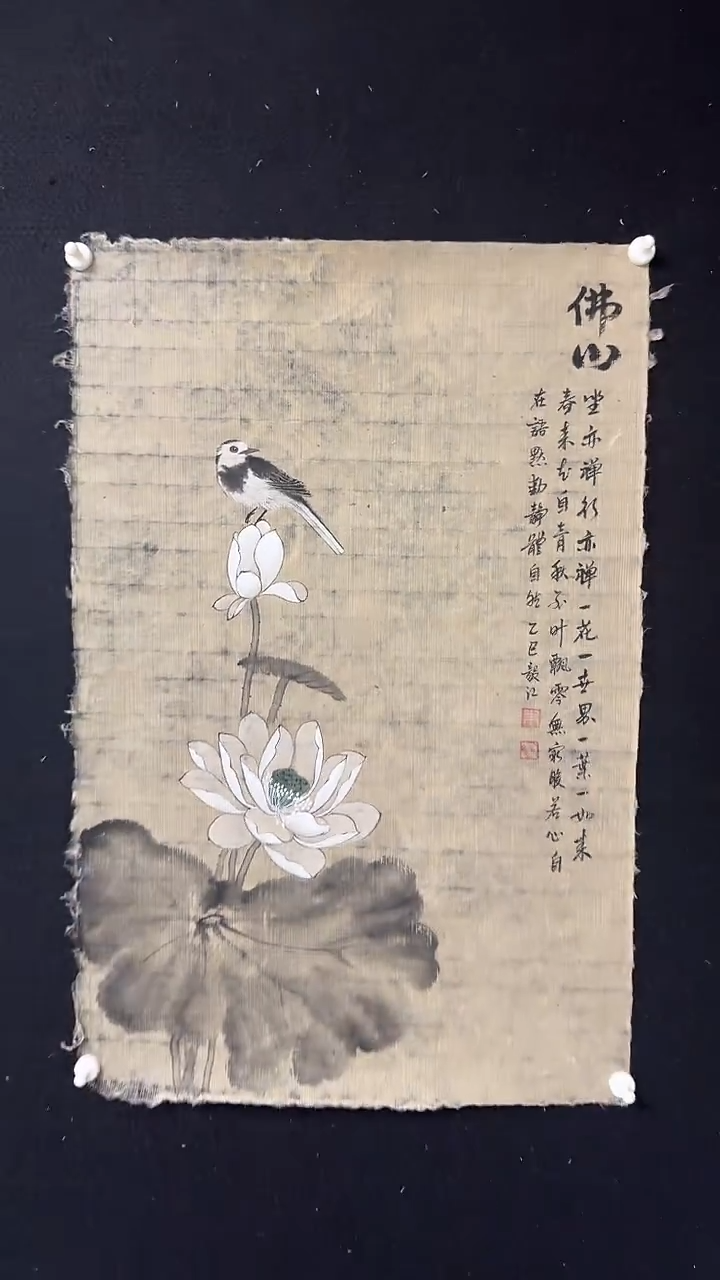 佛心
坐亦禅行亦禅一花一世界一葉一如来
春来花自青秋至叶飄零無窮般若心自
在語默動静體自然乙巳毅江